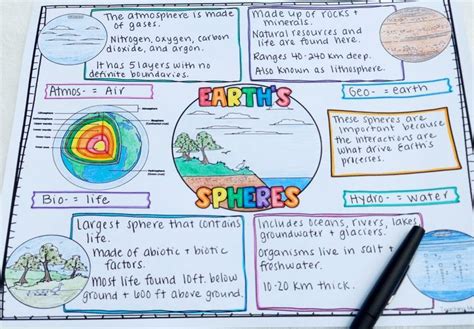 The atmosphere is made
of gases.
Nitrogen, oxygen, carbon
dioxide, and argon.
It has 5 layers with no
definite boundaries.
Made up of rocks +
minerals.
Natural resources and
life are found here.
Ranges 40-240 km deep.
Also known as lithosphere.
Atmos- = Air
EARTH'S
SPHERES
Geo- = earth
These spheres are
important because
the interactions are
what drive Earth's
processes.
Bio- = life
Hydro- = water
Largest sphere that contains
life.
made of abiotic + biotic
factors.
Most life found 10ft. below
ground + 600 ft above ground.
Includes oceans, rivers, lakes,
groundwater + glaciers.
Organisms live in salt +
freshwater.
10-20 km thick.